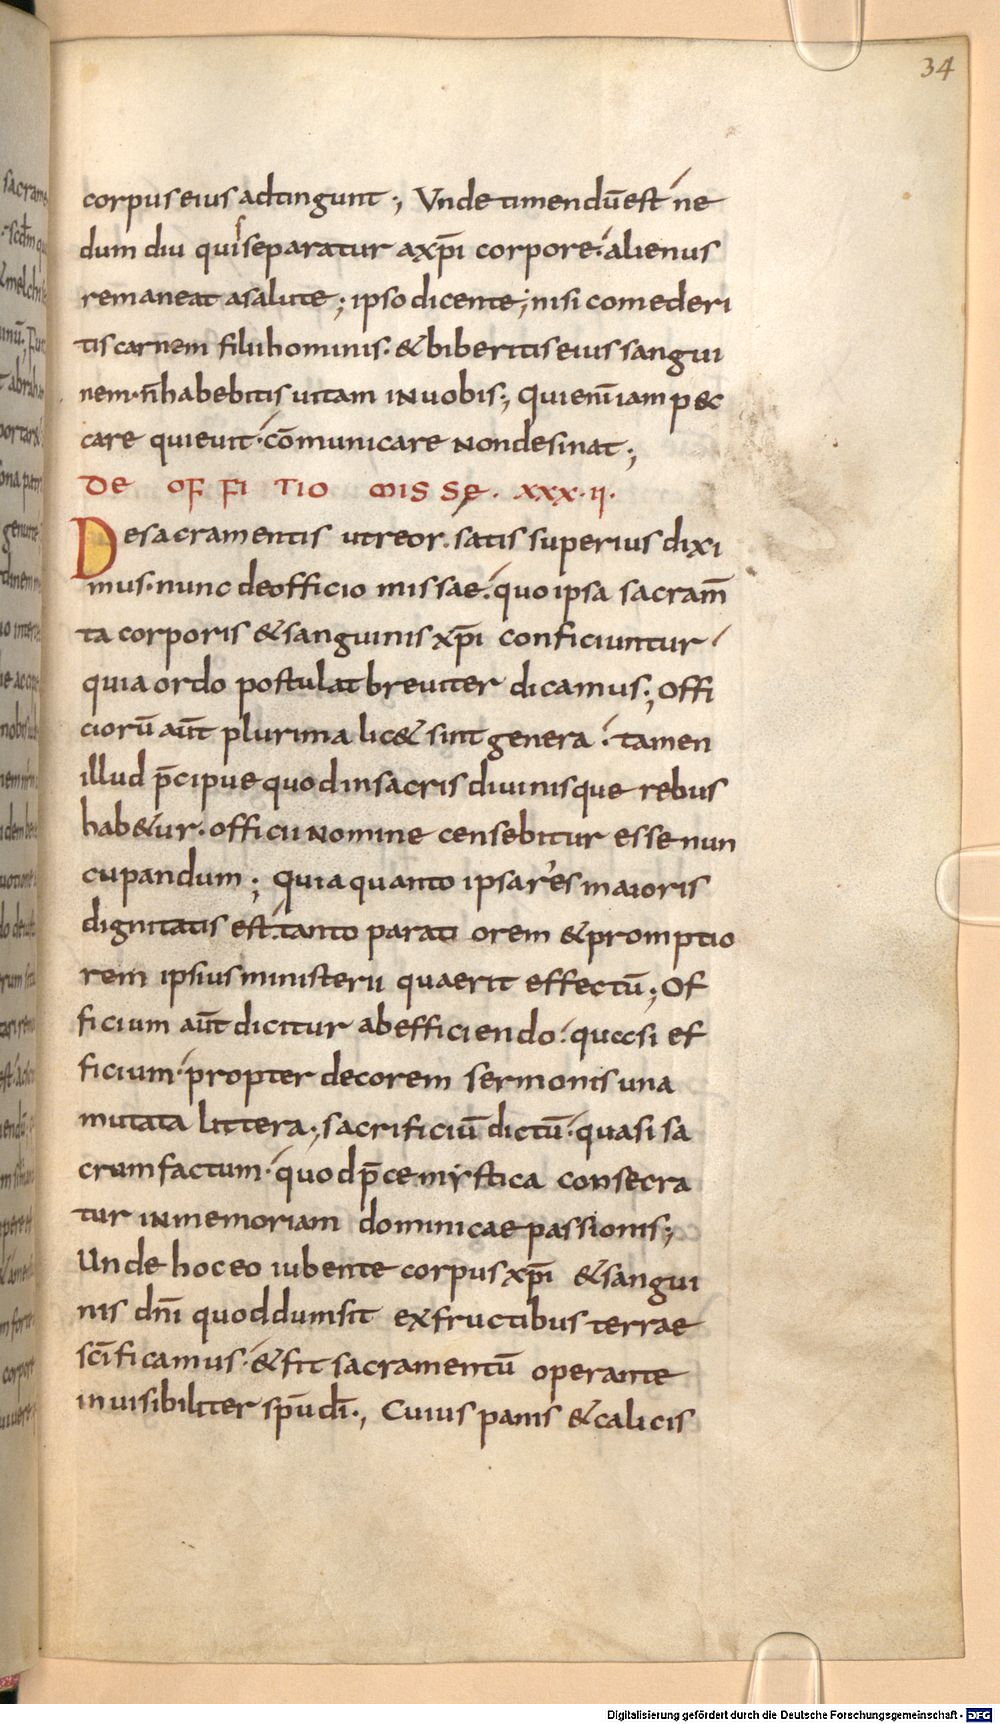 34
corpus eius adtingunt; Vnde timendū est ne
dum diu qui separatur a xp̄i corpore. alienus
remaneat a salute; ipso dicente; nisi comederi
tis carnem filii hominis. & biberitis eius sangui
nem. n̄ habebitis uitam in uobis; Qui eni͞ iam pec
care quieuit. cōmunicare non desinat;
DE OFFITIO MISSE. XXX.II.
De sacramentis ut reor. satis superius dixi
mus. nunc de officio missae. quo ipsa sacram̄
ta corporis & sanguinis xp̄i conficiuntur
quia ordo postulat breuiter dicamus; Offi
ciorū aūt plurima lic& sint genera. tamen
illud p̄cipue quod in sacris diuinisque rebus
hab&ur. officii nomine censebitur esse nun
cupandum; Quia quanto ipsa res maioris
dignitatis est. tanto paratiorem & promptio
rem ipsius ministerii quaerit effectū; Of
ficium aūt dicitur ab efficiendo. quasi ef
ficium. propter decorem sermonis una
mutata littera; sacrificiū dictū. quasi sa
crum factum. quod p̄ce mystica consecra
tur in memoriam dominicae passionis;
Unde hoc eo iubente corpus xp̄i & sangui
nis dn̄i quod dum sit ex fructibus terrae
sc̄ificamus. & fit sacramentū operante
inuisibiliter sp̄u dī; Cuius panis & calicis
Digitalisierung gefördert durch die Deutsche Forschungsgemeinschaft - DFG